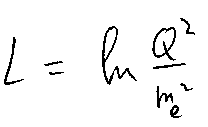 L = ln Q²/mₑ²